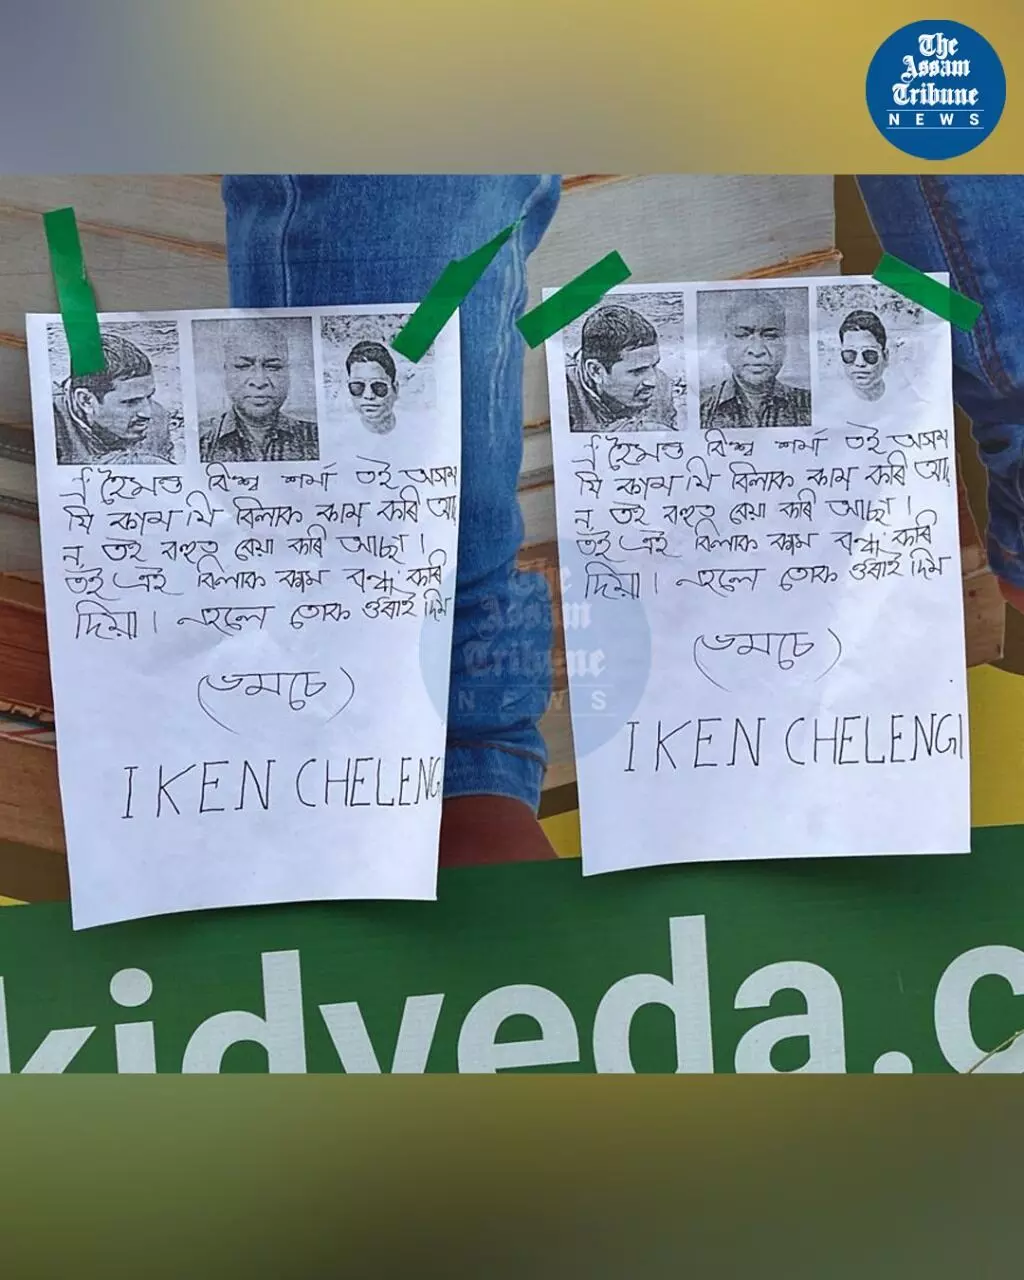 The
Assam
Tribune
NEWS
ঐ হৈমন্ত বিশ্ব শৰ্মা তই অসম
যি কাম যি বিলাক কাম কৰি আছ
ন, তই বহুত বেয়া কৰি আছা।
তই এই বিলাক কাম বন্ধ কৰি
দিয়া। নহলে তোক গুৰাই দিম
(ভমচে)
I KEN CHELENG
ঐ হৈমন্ত বিশ্ব শৰ্মা তই অসম
যি কাম যি বিলাক কাম কৰি আছ
ন, তই বহুত বেয়া কৰি আছা।
তই এই বিলাক কাম বন্ধ কৰি
দিয়া। নহলে তোক গুৰাই দিম
(ভমচে)
I KEN CHELENGI
The
Assam
Tribune
NEWS
kidveda.c